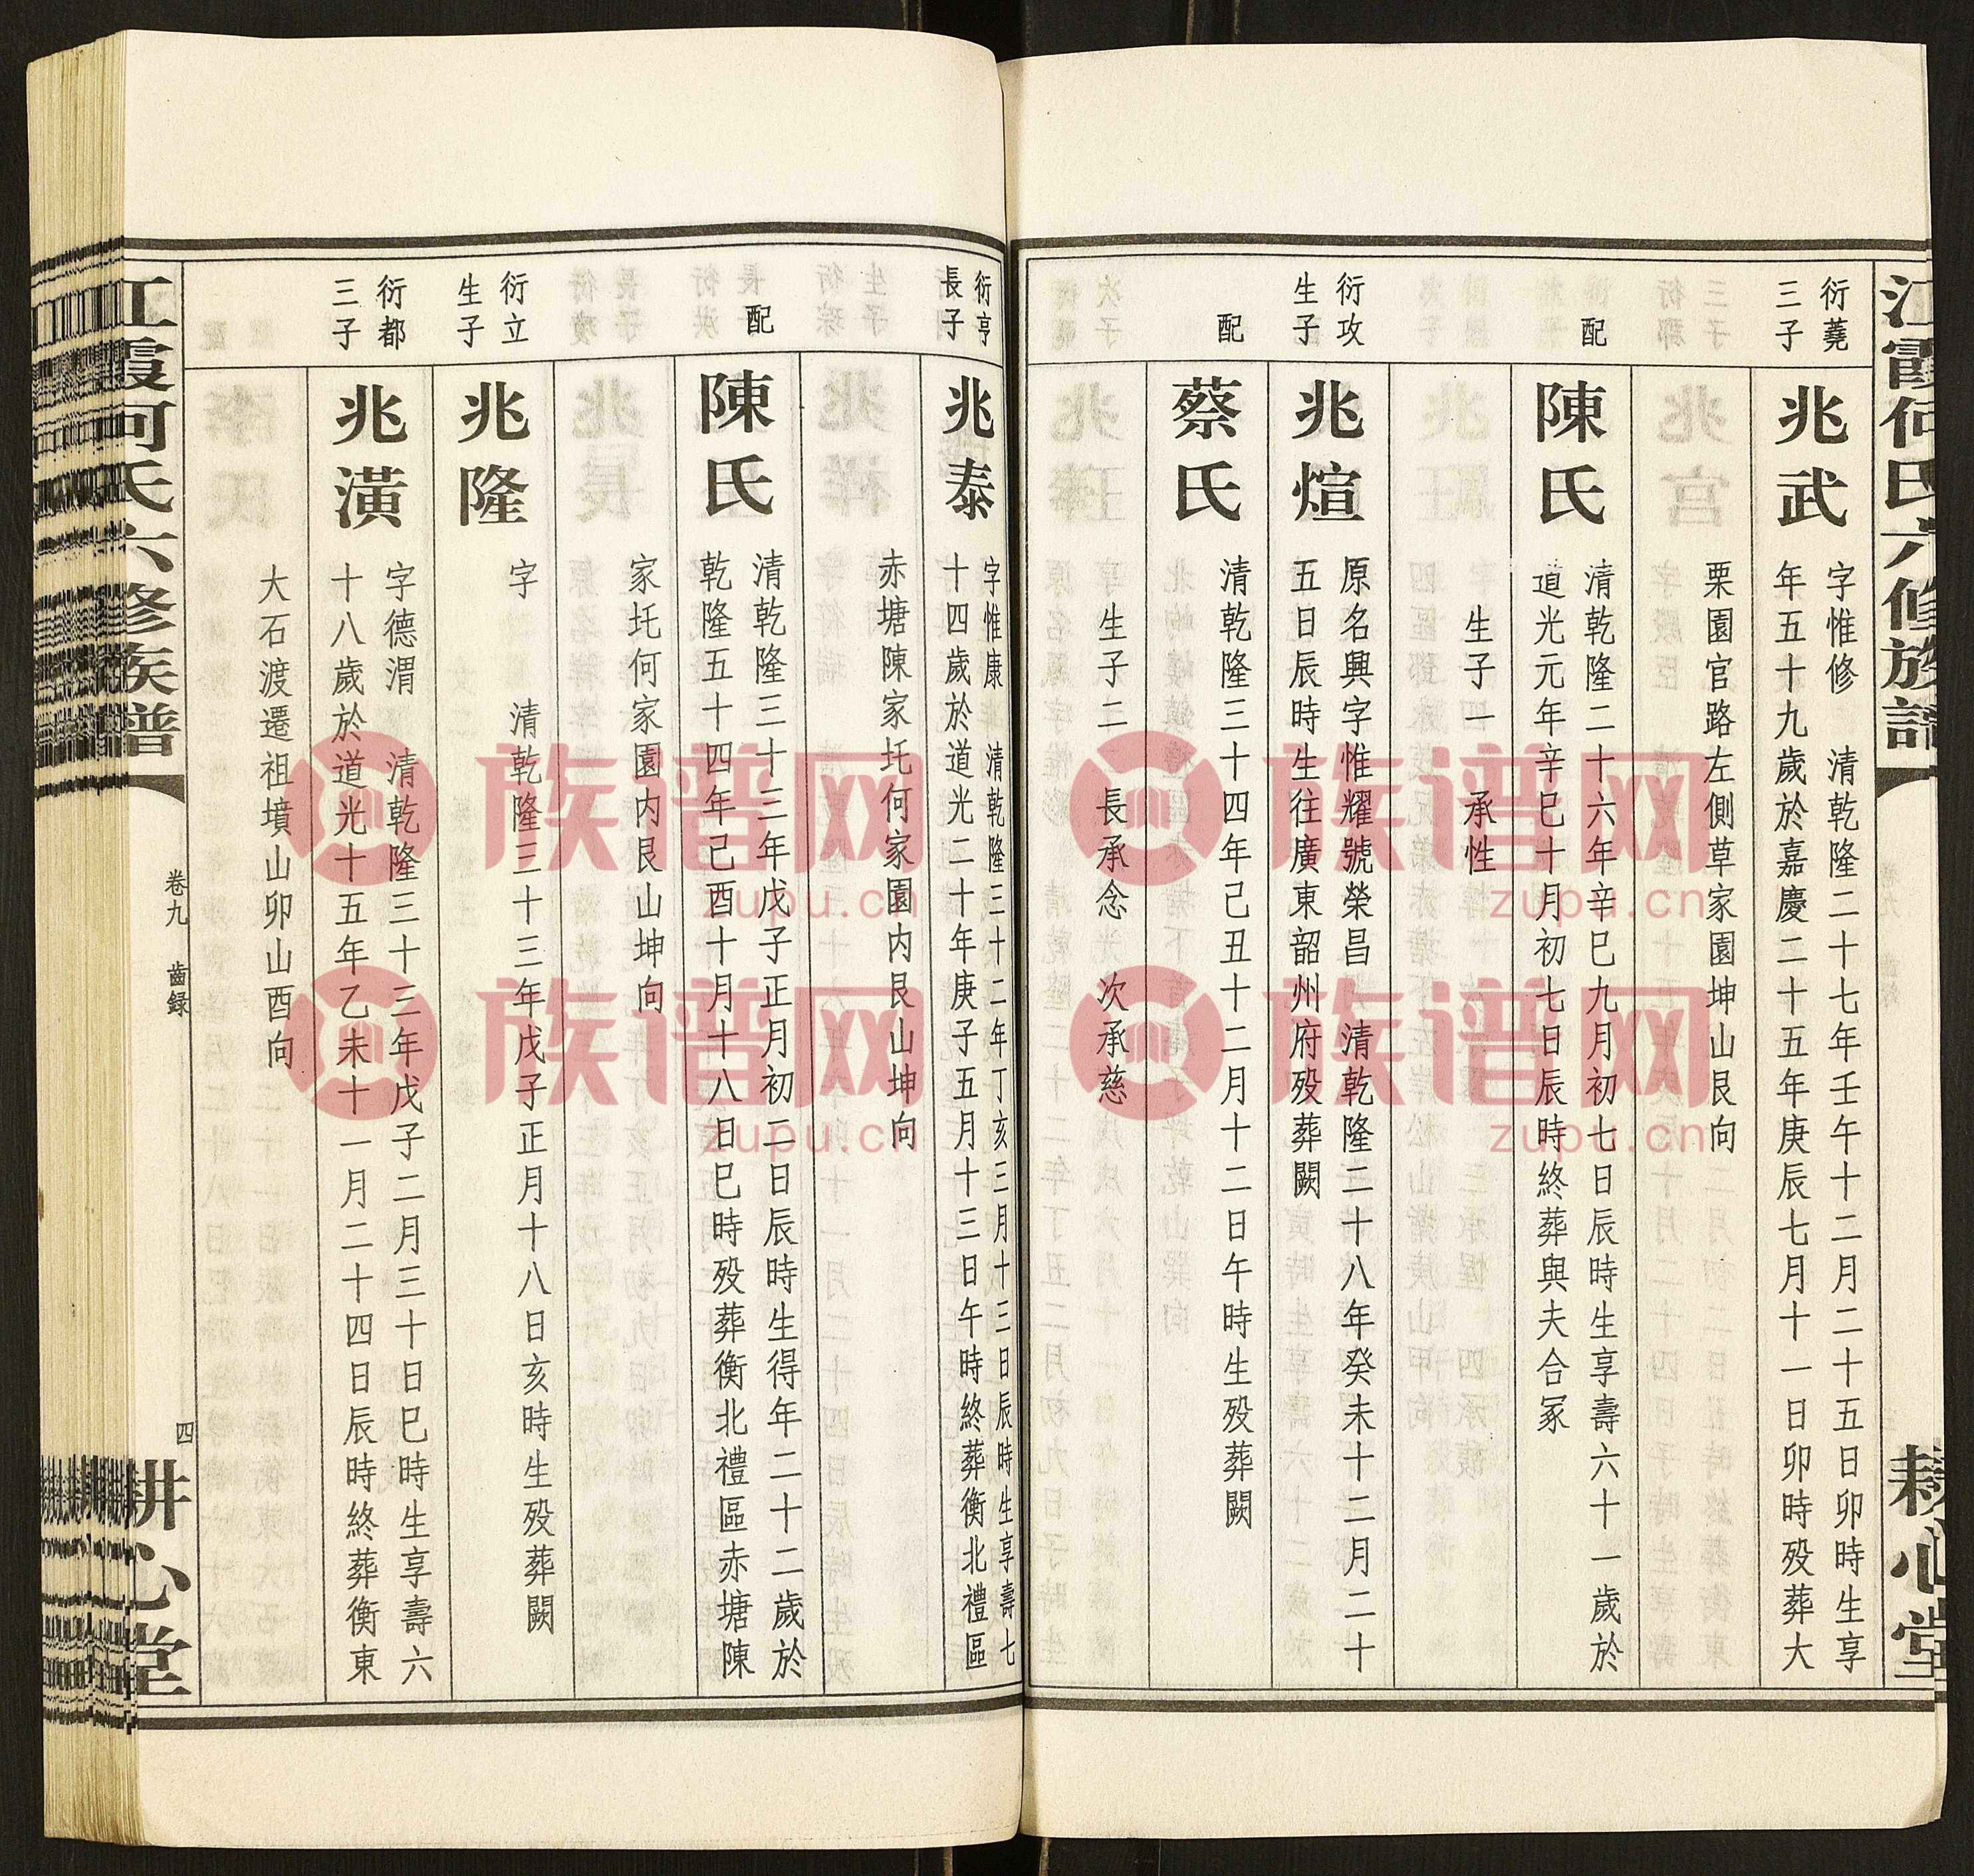 江霞何氏六修族譜
耕心堂
衍蕘
三子
兆武
字惟修 清乾隆二十七年壬午十二月二十五日卯時生享
年五十九歲於嘉慶二十五年庚辰七月十一日卯時歿葬大
栗園官路左側草家園坤山艮向
配
陳氏
清乾隆二十六年辛巳九月初七日辰時生享壽六十一歲於
道光元年辛巳十月初七日辰時終葬與夫合冢
生子一 承性
衍攻
生子
兆煊
原名興字惟耀號榮昌 清乾隆二十八年癸未十二月二十
五日辰時生往廣東韶州府歿葬闕
配
蔡氏
清乾隆三十四年己丑十二月十二日午時生歿葬闕
生子二 長承念 次承慈
衍亨
長子
兆泰
字惟康 清乾隆三十二年丁亥三月十三日辰時生享壽七
十四歲於道光二十年庚子五月十三日午時終葬衡北禮區
赤塘陳家圫何家園内艮山坤向
配
陳氏
清乾隆三十三年戊子正月初二日辰時生得年二十二歲於
乾隆五十四年己酉十月十八日巳時歿葬衡北禮區赤塘陳
家圫何家園内艮山坤向
衍立
生子
兆隆
字 清乾隆三十三年戊子正月十八日亥時生歿葬闕
衍都
三子
兆潢
字德渭 清乾隆三十三年戊子二月三十日巳時生享壽六
十八歲於道光十五年乙未十一月二十四日辰時終葬衡東
大石渡遷祖墳山卯山酉向
江霞何氏六修族譜
卷九 齒録
四
耕心堂
族谱网
zupu.cn
族谱网
zupu.cn
族谱网
zupu.cn
族谱网
zupu.cn